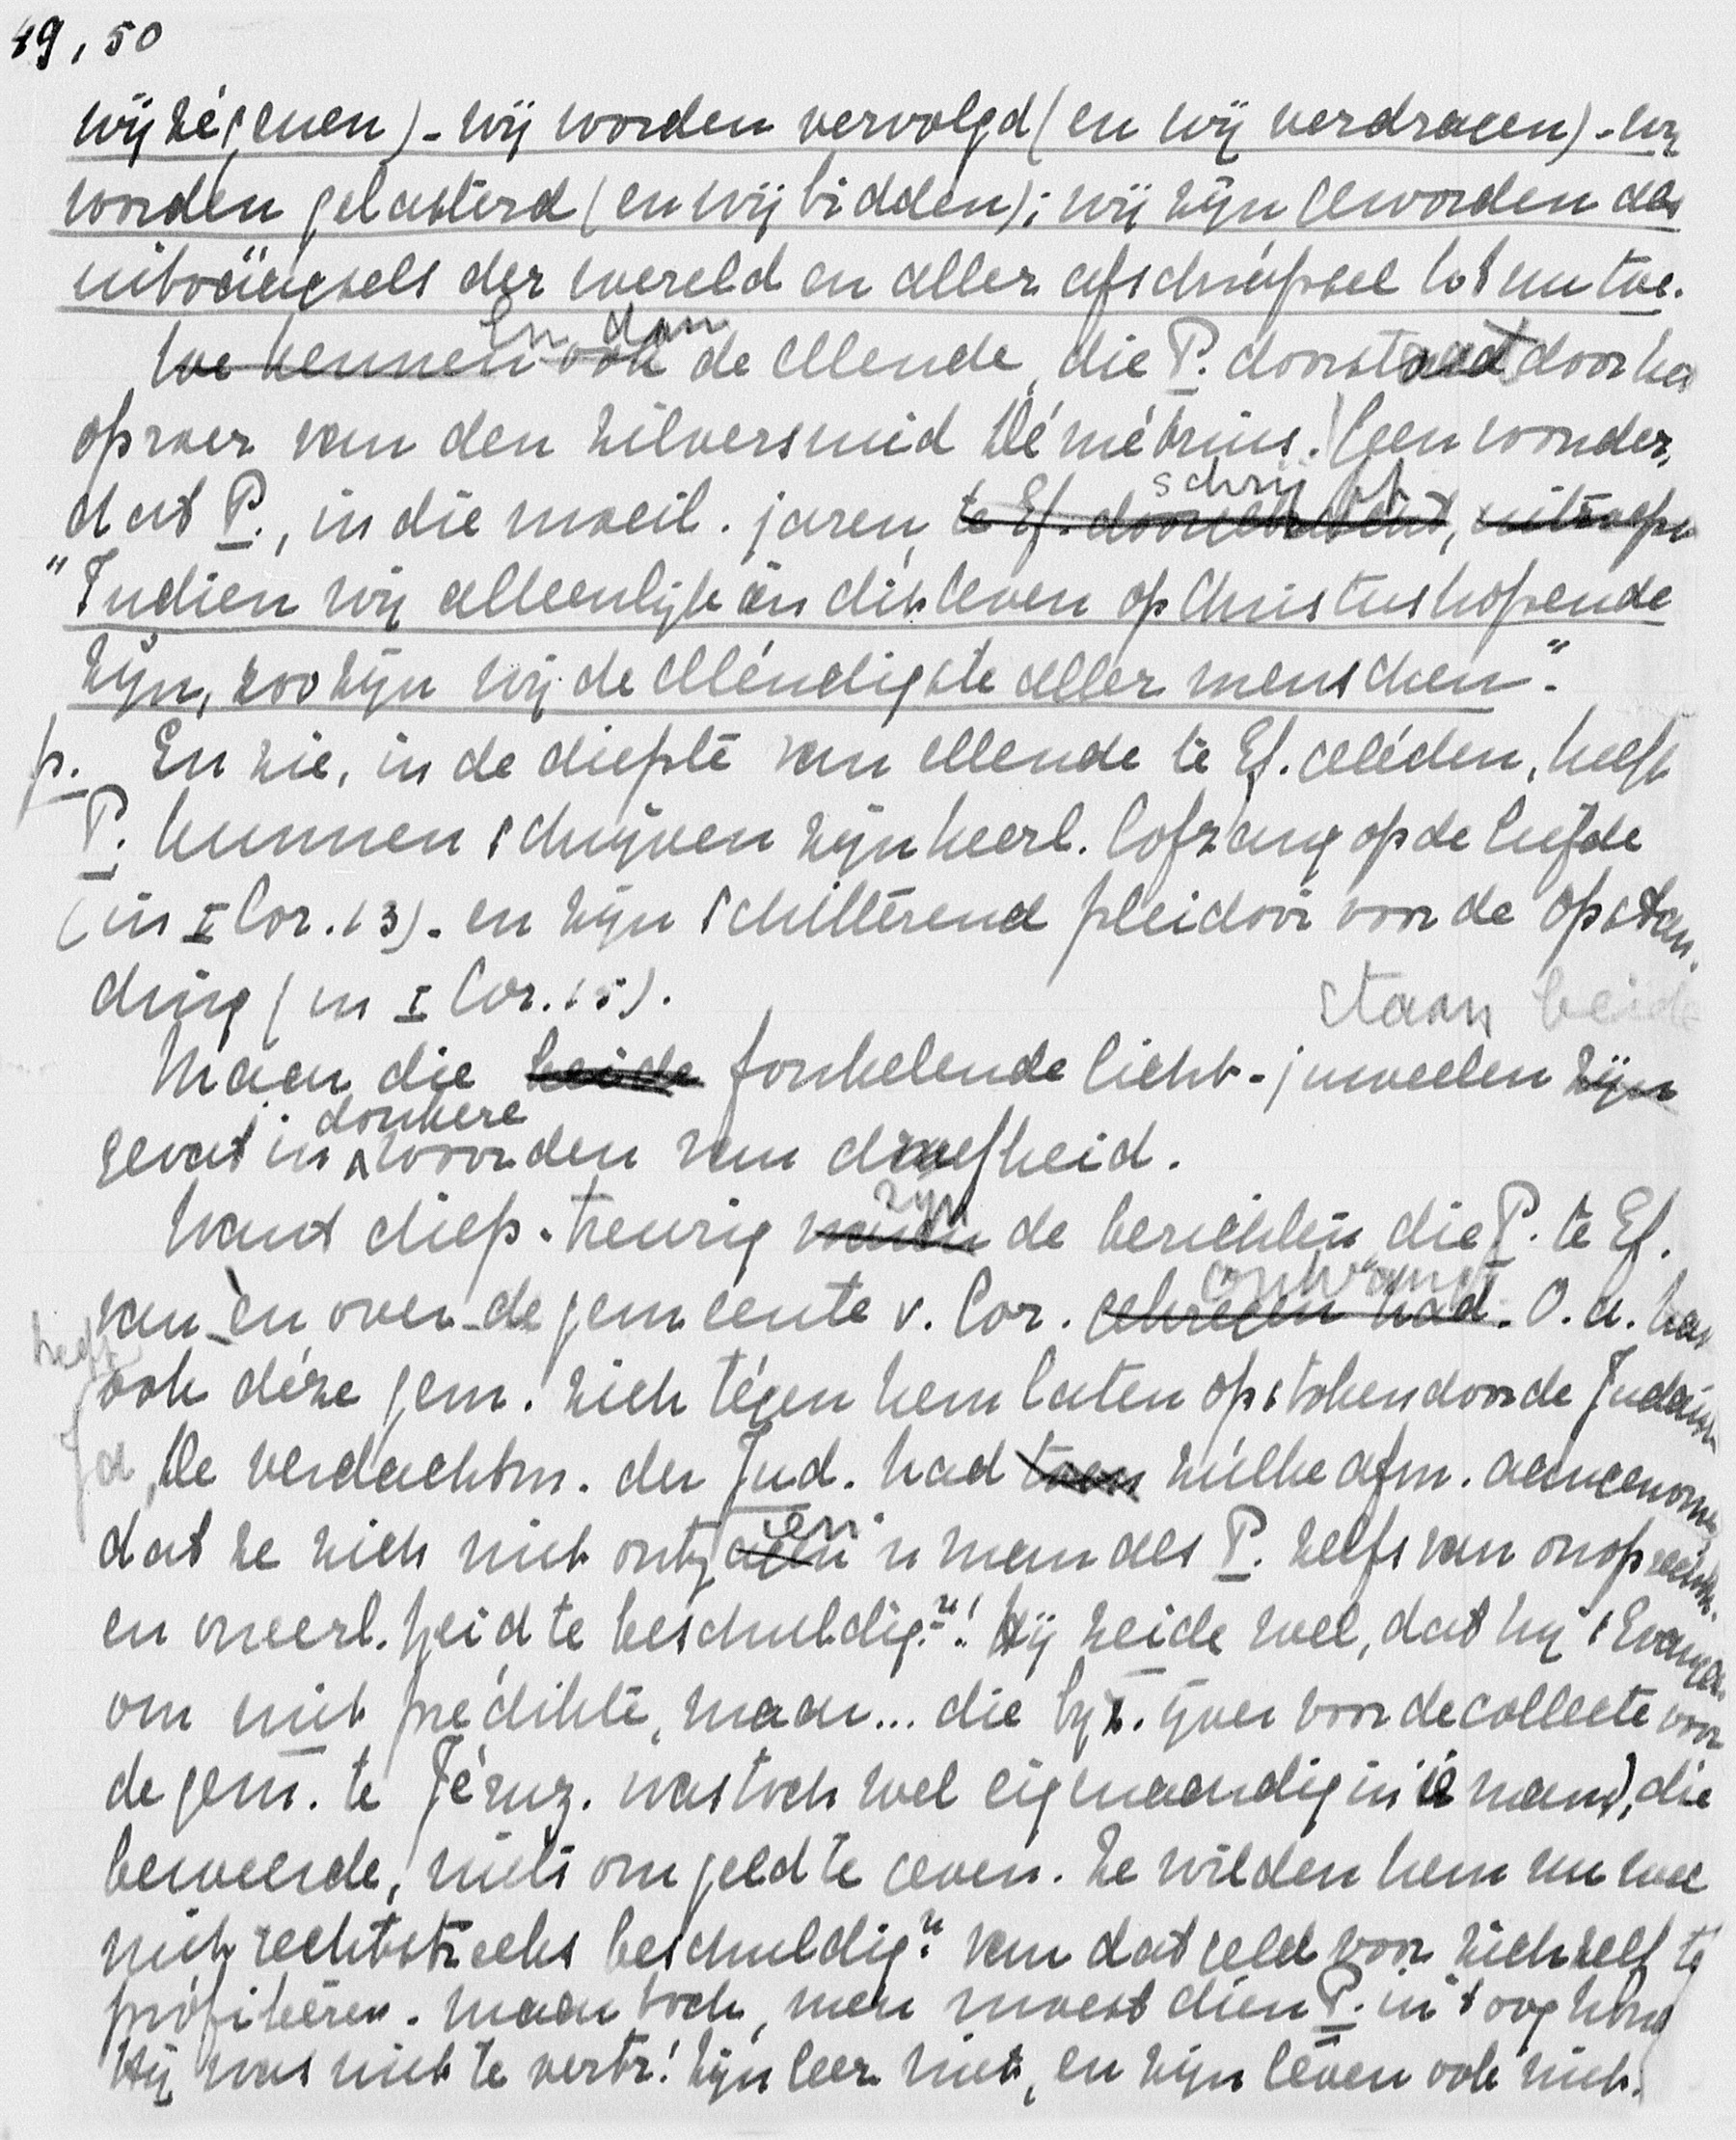 49, 50
wij zégenen) - wij worden vervolgd (en wij verdragen) - wij
worden gelasterd (en wij bidden); wij zijn geworden als
uitvaagsels der wereld en aller afschrapsel tot nu toe.
En dan
We kennen ook de ellende, die P. doorstaat door het
oproer van den zilversmid Démétrius. Geen wonder,
schrijft
dat P., in die moeil. jaren, te Ef. doorgebracht, uitroept
"Indien wij alleenlijk in dit leven op Christus hopende
zijn, zoo zijn wij de elléndigste aller menschen".
p. En zie, in de diepte van ellende te Ef. geléden, heeft
P. kunnen schrijven zijn heerl. lofzang op de liefde
(in I Cor. 13) - en zijn schitterend pleidooi voor de opstan-
ding (in I Cor. 15).
staan beide
Maar die beide fonkelende licht-juweelen zijn
donkere
gevat in woorden van droefheid.
zijn
Want diep-treurig waren de berichten, die P. te Ef.
ontvangt
van èn over de gemeente v. Cor. gekregen had. O.a. had
heeft
ook déze gem. zich tégen hem laten opstoken door de Judaïsten
Ja, De verdachtm. der Jud. had toen zúlke afm. aangenomen
en
dat ze zich niet ontzagen 'n man als P. zelfs van onoprechth.
en oneerl.heid te beschuldig.n! Hij zeide wel, dat hij 't Evangelie
om niet predikte, maar... die byz. ijver voor de collecte voor
de gem. te Jéruz. was toch wel eigenaardig in 'n man, die
beweerde, niets om geld te geven. Ze wilden hem nu wel
niet rechtstreeks beschuldig.n van dat geld voor zichzelf te
profitéren. Maar toch, men moest dien P. in 't oog houd
Hij was niet te vertr.! Zijn leer niet, en zijn leven ook niet.